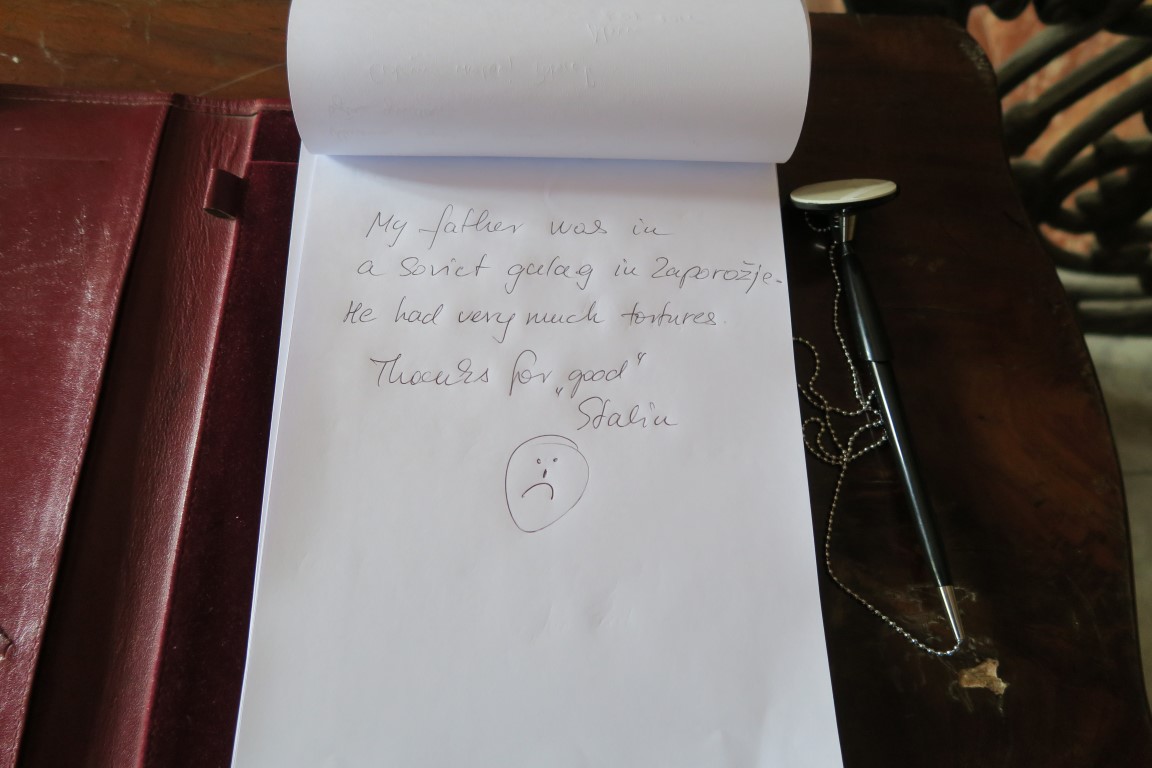 My father was in
a Soviet gulag in Zaporožje.
He had very much tortures.
Thanks for „good“
Stalin